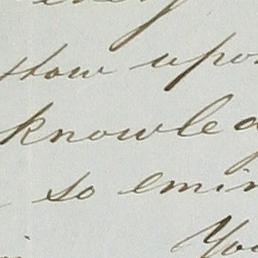 stow upon
knowled
so emin
You